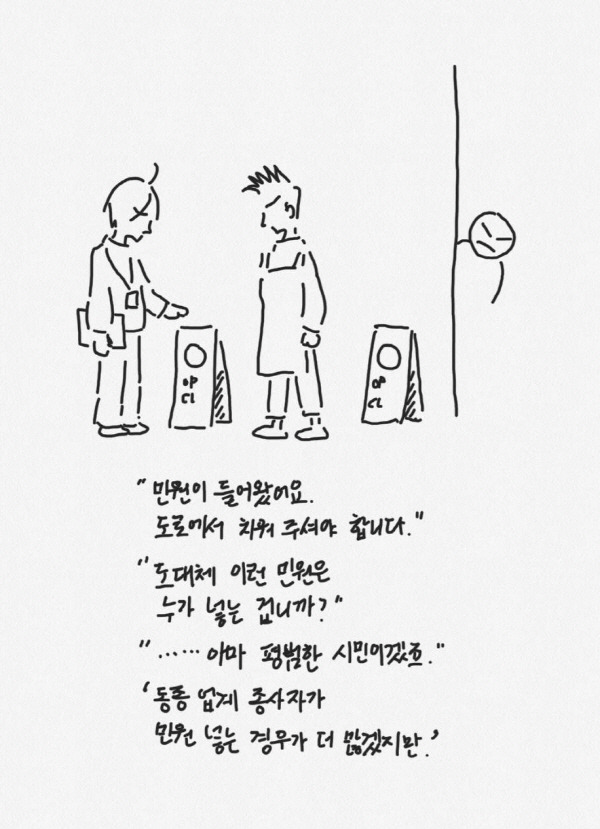 OP
CL
OP
CL
"민원이 들어왔어요.
도로에서 치워 주셔야 합니다."
"도대체 이런 민원은
누가 넣는 겁니까?"
"…… 아마 평범한 시민이겠죠."
'동종 업계 종사자가
민원 넣는 경우가 더 많겠지만.'